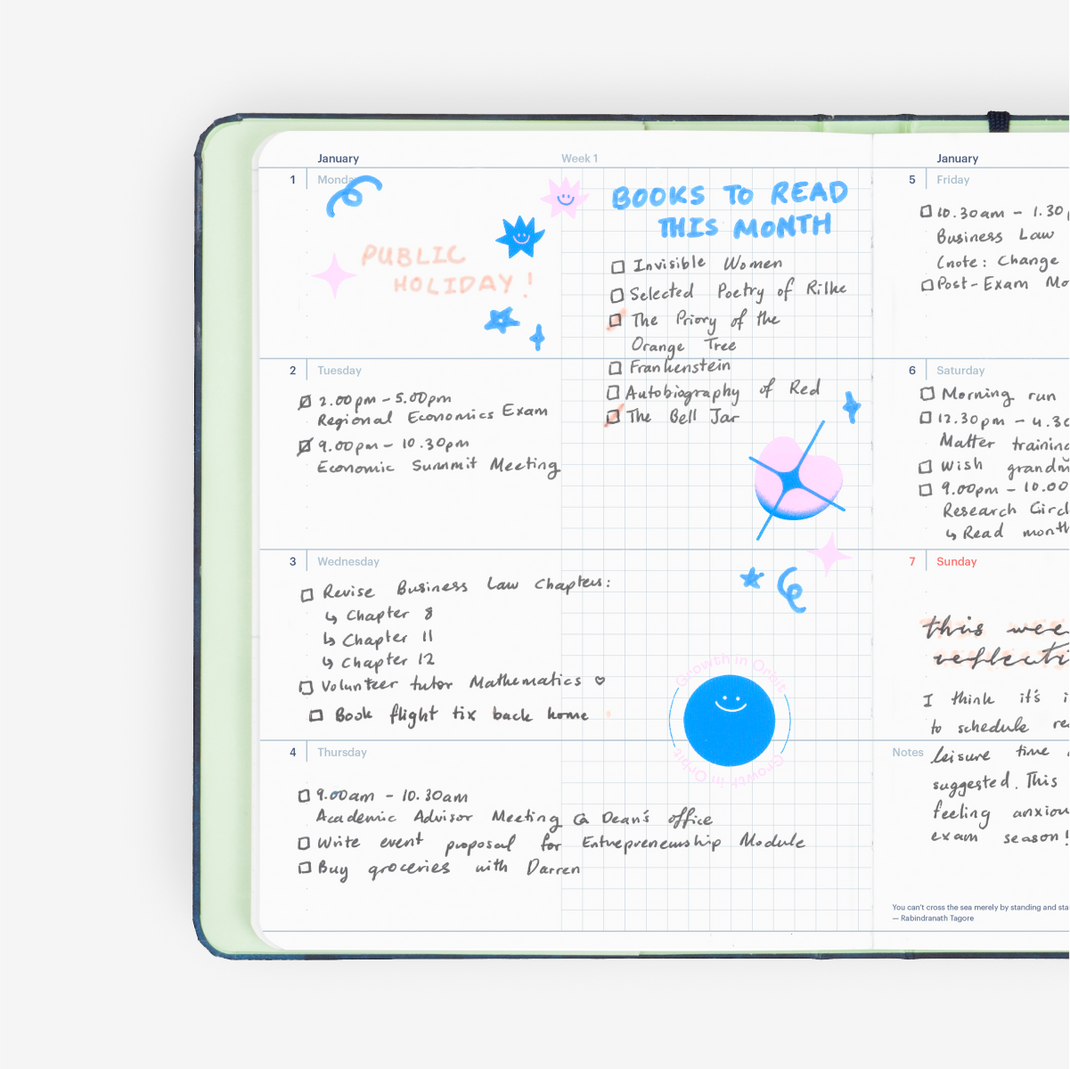 January
Week 1
1 Monday
PUBLIC
HOLIDAY!
BOOKS TO READ
THIS MONTH
Invisible Women
Selected Poetry of Rilke
The Priory of the
Orange Tree
Frankenstein
Autobiography of Red
The Bell Jar
2 Tuesday
2.00pm - 5.00pm
Regional Economics Exam
9.00pm - 10.30pm
Economic Summit Meeting
3 Wednesday
Revise Business Law Chapters:
↳ Chapter 8
↳ Chapter 11
↳ Chapter 12
Volunteer tutor Mathematics ♡
Book flight tix back home
Growth in Orbit
Growth in Orbit
4 Thursday
9.00am - 10.30am
Academic Advisor Meeting @ Dean's office
Write event proposal for Entrepreneurship Module
Buy groceries with Darren
January
5 Friday
10.30am - 1.30
Business Law
(note: Change
Post-Exam
6 Saturday
Morning run
12.30pm - 4.30
Matter
Wish
9.00pm - 10.00
Research
↳ Read
7 Sunday
this
I think it's
to schedule
Notes
leisure time
suggested. This
feeling
exam season!
You can't cross the sea merely by standing and
— Rabindranath Tagore